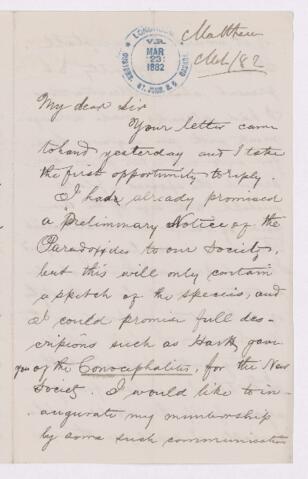 Matthew
Mch/82
V.R.
MAR
23
1882
CUSTOMS, ST. JOHN N.B.
My dear Sir
Your letter came
to hand yesterday and I take
the first opportunity to reply.
I had already promised
a Preliminary Notice of the
Paradoxides to our Society,
but this will only contain
a sketch of the species, and
I could promise full des-
criptions such as Hartt gave
you of the Conocephalites, for the New
Society. I would like to in-
augurate my membership
by some such communication